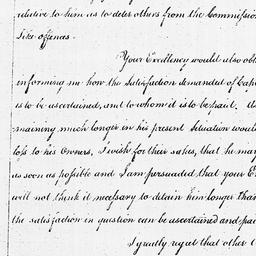 relative to him as to deter others from the Commission
like offences.
Your Excellency would also obl
informing me how the Satisfaction demanded of Cap
is to be ascertained, and to whom it is to be paid. As
maining much longer in his present Situation would
loss to his Owners, I wish for their sakes, that he may
as soon as possible and I am persuaded that your E
will not think it necessary to detain him longer than
the satisfaction in question can be ascertained and pai
I greatly regret that other C